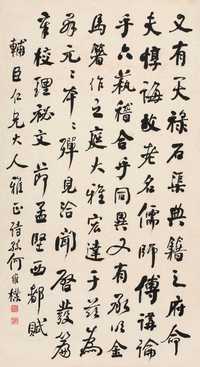 又有天祿石渠典籍之府命
夫惇誨故老名儒師傅講論
乎六藝稽合乎同異又有承明金
馬箸作之庭大雅宏達于茲為
群元〻本〻殫見洽聞啓發篇
章校理祕文 節孟堅西都賦
輔臣仁兄大人雅正 詩孫何維樸